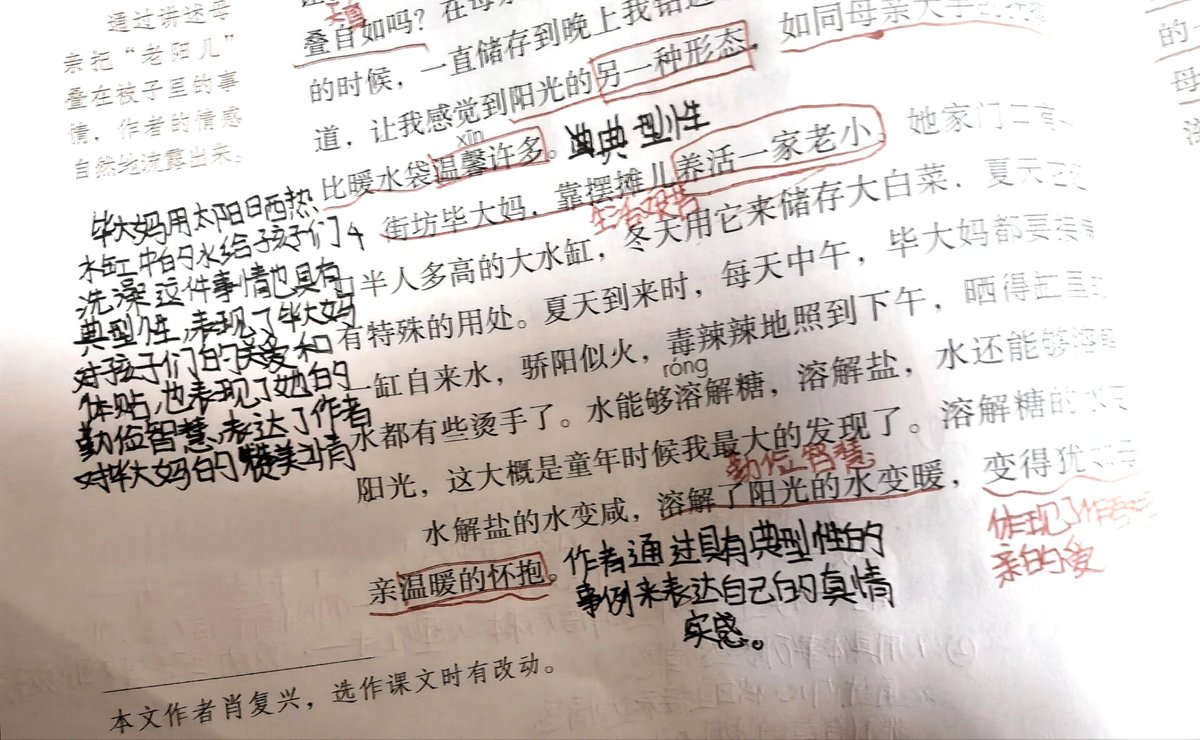 通过讲述母
亲把“老阳儿”
叠在被子里的事
情，作者的情感
自然地流露出来。
叠自如吗？在母亲
的时候，一直储存到晚上我钻进
道，让我感觉到阳光的另一种形态，如同母亲大手的
xīn
比暖水袋温馨许多。典型性
街坊毕大妈，靠摆摊儿养活一家老小。她家门口有一
生活艰苦
口半人多高的大水缸，冬天用它来储存大白菜，夏天
有特殊的用处。夏天到来时，每天中午，毕大妈都要接
一缸自来水，骄阳似火，毒辣辣地照到下午，晒得缸里的
róng
水都有些烫手了。水能够溶解糖，溶解盐，水还能够溶解
阳光，这大概是童年时候我最大的发现了。溶解糖的水
勤俭智慧
水解盐的水变咸，溶解了阳光的水变暖，变得犹
亲温暖的怀抱。
毕大妈用太阳日晒热
水缸中的水给孩子们
洗澡这件事情也具有
典型性，表现了毕大妈
对孩子们的关爱和
体贴，也表现了她的
勤俭智慧，表达了作者
对毕大妈的赞美之情
作者通过具有典型性的
事例来表达自己的真情
实感。
体现了
亲的爱
本文作者肖复兴，选作课文时有改动。